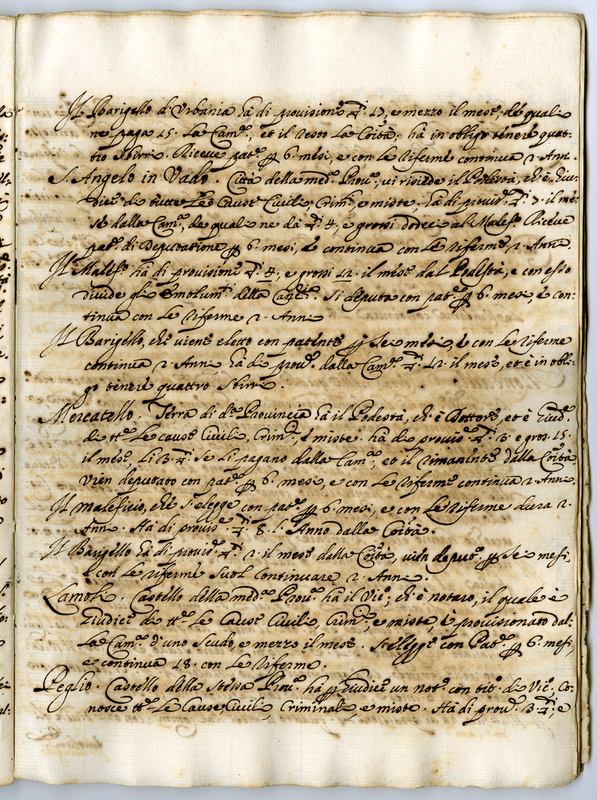 Il Barigello di Urbania hà di provisione ∇. 17, e mezzo il mese, de quali
ne paga 15. la Cam.ª, et il resto la Cõità. hà in obligo tenere quat-
tro Sbirri. Riceve pat.e p 6. mesi, e con le Riferme continua 2. Anni.
S. Angelo in Vado. Città della med.ª Prou.ª, vi risiede il Podestà, che è Giu-
dice di tutte le Cause Civili, Crim.li e miste. hà di prouis.e ∇. 7. il me-
se dalla Cam.ª, de quali ne dà ∇. 4, e grossi dodeci al Malef.º Riceve
pat.e di Deputatione p 6. mesi, e continua con le Riferme 2. Anni.
Il Malef.º hà di provisione ∇. 4, e grossi 12. il mese dal Podestà, e con esso
divide gli Emolum.ti della Canc.ª. Si deputa con pat.e p 6. mesi, e con-
tinua con le Riferme 2. Anni
Il Barigello, che viene eletto con patente p Se mesi, e con le Riferme
continua 2. Anni hà di prou.e dalla Cam.ª ∇. 12. il mese, et è in obli-
go tenere quattro Sbirri.
Mercatello. Terra di d.ª Provincia hà il Podestà, ch'è Dottore, et è Giud.e
di tt.e le cause Civili, Crim.li, e miste. hà di prouis.e ∇. 3. e gros. 15.
il mese. Li 3. ∇. se li pagano dalla Cam.ª, et il rimanente dalla Cõità
vien deputato con pat.e p 6. mesi, e con le Riferme continua 2. Anni.
Il maleficio, che si elegge con pat.e p 6. mesi, e con le Riferme dura 2.
Anni. Hà di prouis.e ∇. 8. l'Anno dalla Cõità.
Il Barigello hà di prouis.e ∇. 2. il mese dalla Cõità, vien deput.º p Se mesi,
e con le riferme suol continuare 2. Anni.
Lamoli. Castello della med.ª Prou.ª hà il Vic.º, ch'è notaro, il quale è
Giudice di tt.e le Cause Civili, Crim.li, e miste, è provisionato dal-
la Cam.ª d'uno Scudo, e mezzo il mese. Si elegge con Pat.e p 6. mesi
e continua 18. con le Riferme.
Peglio. Castello della stessa Prou.ª hà p Giudice un not.º con tit.º di Vic.º, Co-
nosce tt.e le Cause Civili, Criminali, e miste. Hà di prou.e 3. ∇., e